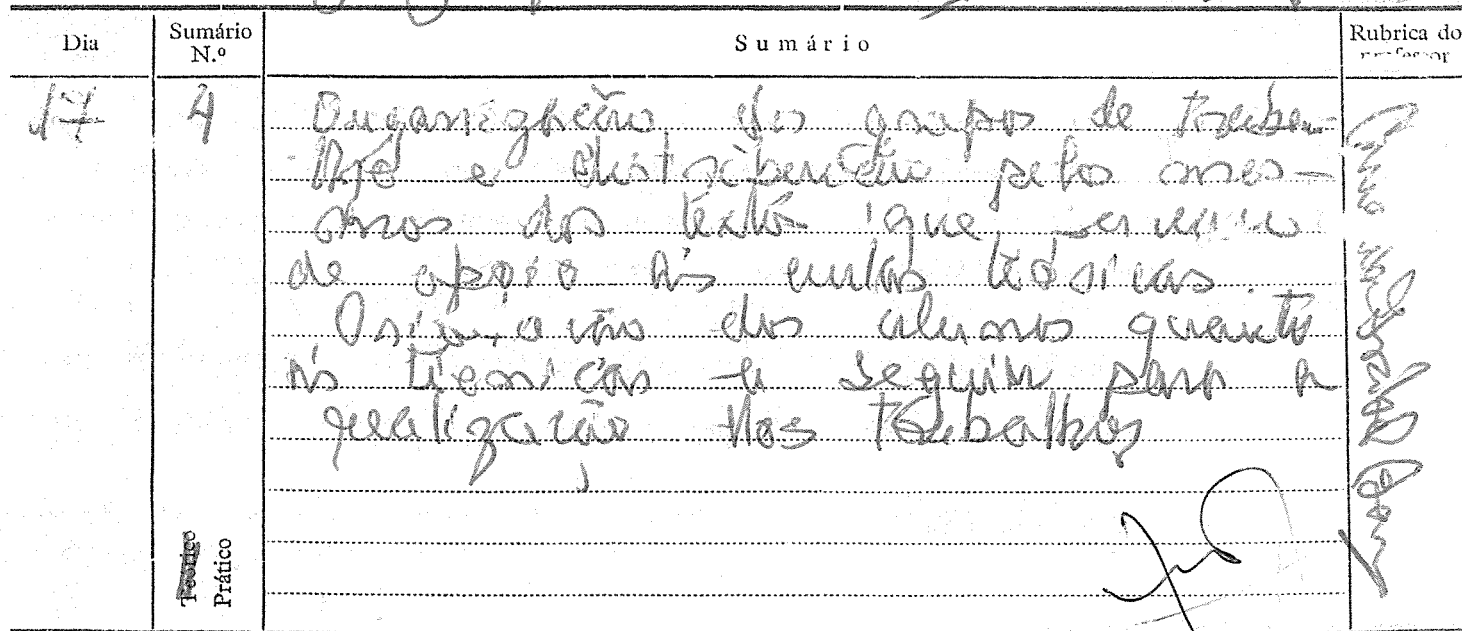 Dia
Sumário N.º
Sumário
Rubrica do professor
17
4
Organização dos grupos de traba-
lho e distribuição pelos mes-
mos dos textos que servem
de apoio às aulas teóricas.
Orientação dos alunos quanto
às técnicas a seguir para a
realização dos trabalhos
Teórico
Prático